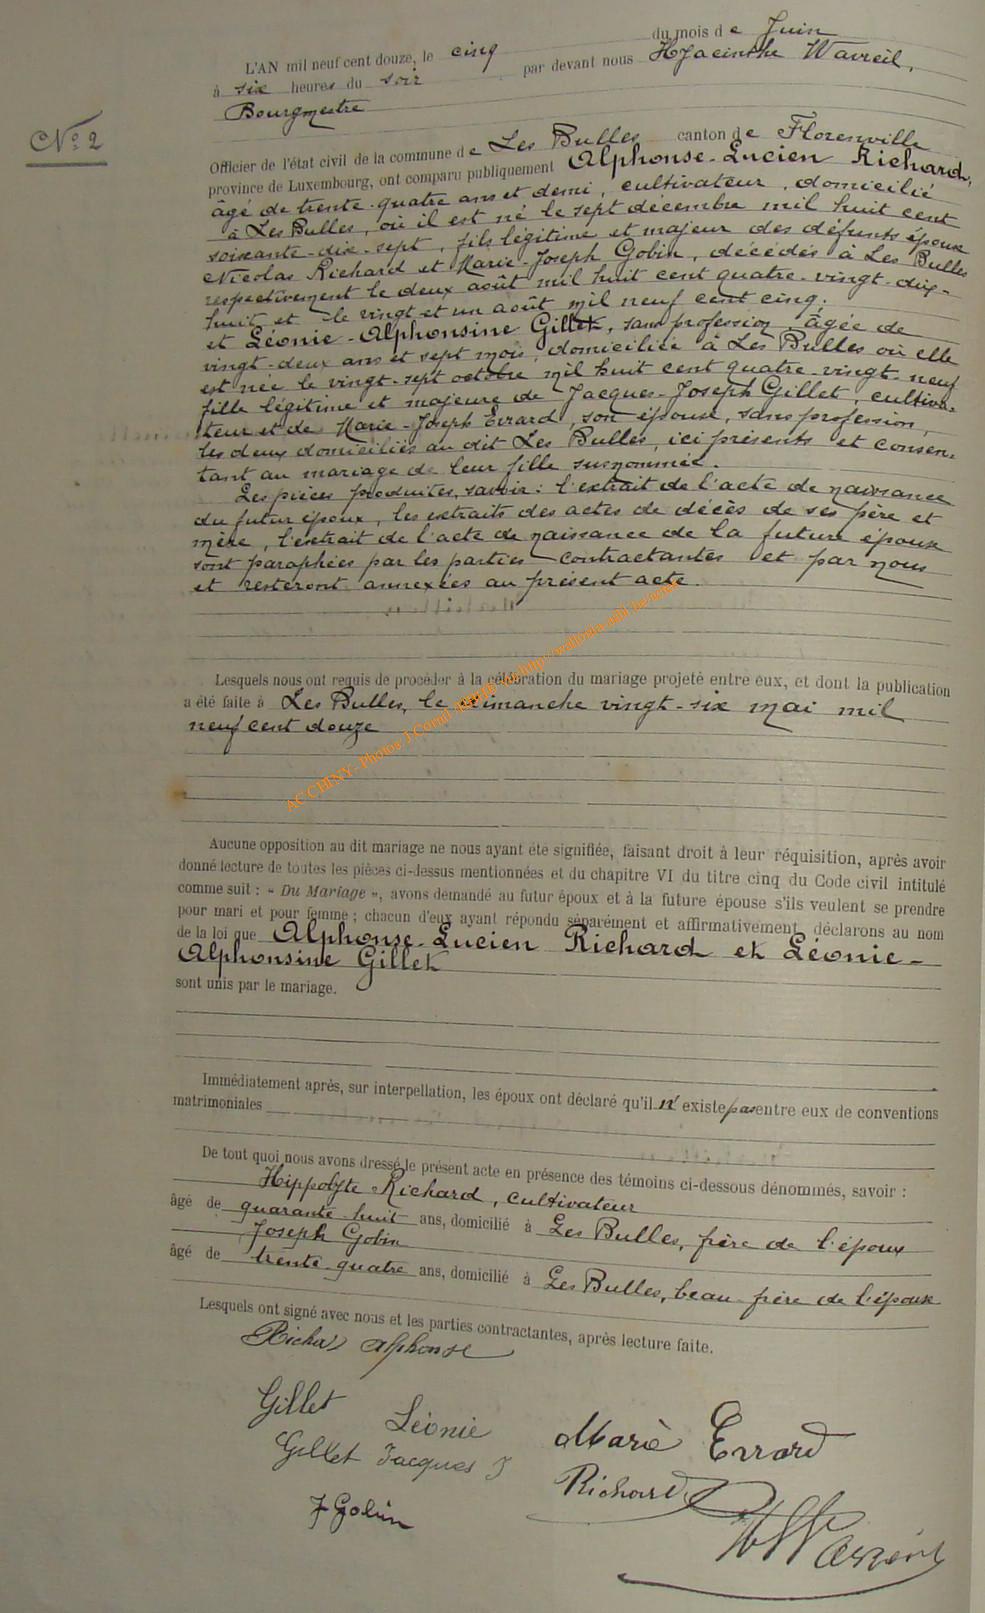 L'AN mil neuf cent douze, le cinq du mois de Juin
à six heures du soir par devant nous Hyacinthe Wavreil,
Bourgmestre
N° 2
Officier de l'état civil de la commune de Les Bulles canton de Florenville
province de Luxembourg, ont comparu publiquement Alphonse-Lucien Richard,
âgé de trente-quatre ans et demi, cultivateur, domicilié
à Les Bulles, où il est né le sept décembre mil huit cent
soixante-dix-sept, fils légitime et majeur des défunts époux
Nicolas Richard et Marie-Joseph Gobin, décédés à Les Bulles
respectivement le deux août mil huit cent quatre-vingt-dix-
huit et le vingt et un août mil neuf cent cinq;
et Léonie-Alphonsine Gillet, sans profession, âgée de
vingt-deux ans et sept mois, domiciliée à Les Bulles où elle
est née le vingt-sept octobre mil huit cent quatre-vingt-neuf
fille légitime et majeure de Jacques-Joseph Gillet, cultiva-
teur et de Marie-Joseph Errard, son épouse, sans profession,
les deux domiciliés au dit Les Bulles, ici présents et consen-
tant au mariage de leur fille susnommée.
Les pièces produites, savoir: l'extrait de l'acte de naissance
du futur époux, les extraits des actes de décès de ses père et
mère, l'extrait de l'acte de naissance de la future épouse
sont paraphées par les parties contractantes et par nous
et resteront annexées au présent acte.
Lesquels nous ont requis de procéder à la célébration du mariage projeté entre eux, et dont la publication
a été faite à Les Bulles, le dimanche vingt-six mai mil
neuf cent douze
AC CHINY - Photos J.Cornl
Aucune opposition au dit mariage ne nous ayant été signifiée, faisant droit à leur réquisition, après avoir
donné lecture de toutes les pièces ci-dessus mentionnées et du chapitre VI du titre cinq du Code civil intitulé
comme suit : « Du Mariage », avons demandé au futur époux et à la future épouse s'ils veulent se prendre
pour mari et pour femme ; chacun d'eux ayant répondu séparément et affirmativement, déclarons au nom
de la loi que Alphonse-Lucien Richard et Léonie-
Alphonsine Gillet
sont unis par le mariage.
Immédiatement après, sur interpellation, les époux ont déclaré qu'il n'existe pas entre eux de conventions
matrimoniales
De tout quoi nous avons dressé le présent acte en présence des témoins ci-dessous dénommés, savoir :
Hippolyte Richard, cultivateur
âgé de quarante-huit ans, domicilié à Les Bulles, frère de l'époux
Joseph Gobin
âgé de trente-quatre ans, domicilié à Les Bulles, beau-frère de l'épouse
Lesquels ont signé avec nous et les parties contractantes, après lecture faite.
Richard alphonse
Gillet Léonie
Marie Errard
Gillet Jacques J
Richard
J Gobin